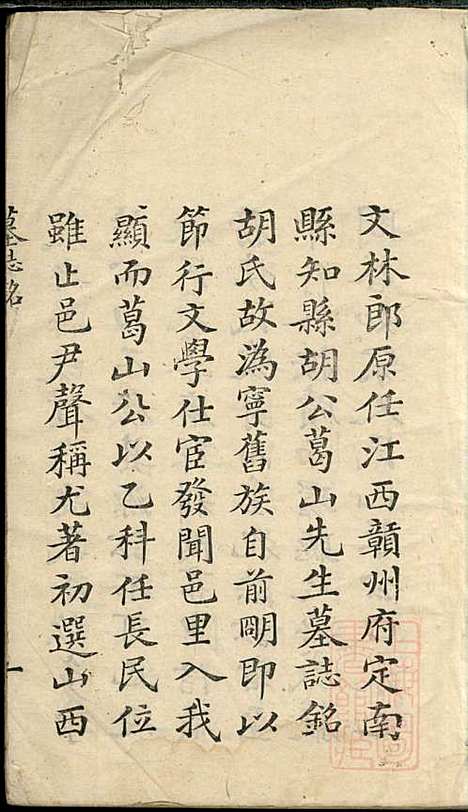 文林郎原任江西贛州府定南
縣知縣胡公葛山先生墓誌銘
胡氏故為寧舊族自前明即以
節行文學仕宦發聞邑里入我
顯而葛山公以乙科任長民位
雖止邑尹聲稱尤著初選山西
墓志銘
一